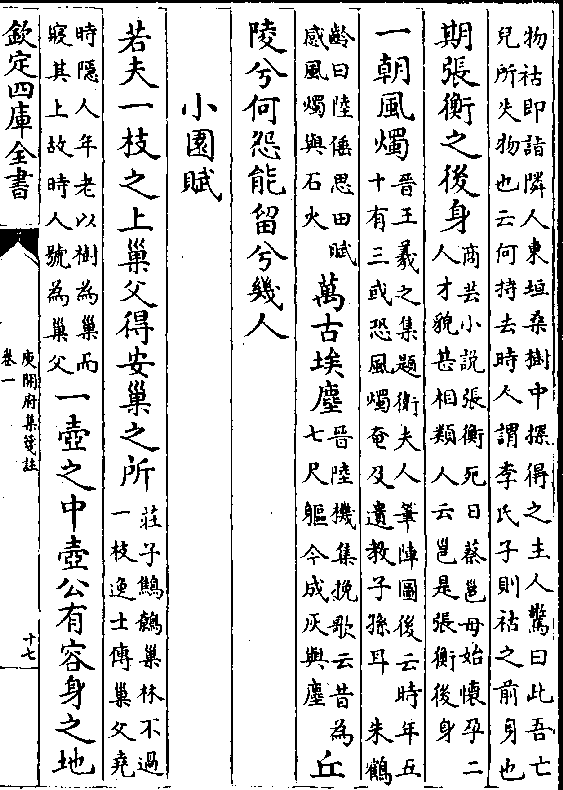 物祜即詣隣人東垣桑樹中探得之主人驚曰此吾亡
兒所失物也云何持去時人謂李氏子則祜之前身也
期張衡之後身商芸小説張衡死日蔡邕母始懷孕二
人才貌甚相類人云邕是張衡後身
一朝風燭晉王羲之集題衛夫人筆陣圖後云時年五
十有三或恐風燭奄及遺教子孫耳 朱鶴
齡曰陸倕思田賦
感風燭與石火
萬古埃塵晉陸機集挽歌云昔為
七尺軀今成灰與塵
丘
陵兮何怨能留兮幾人
小園賦
若夫一枝之上巢父得安巢之所莊子鷦鷯巢林不過
一枝逸士傳巢父堯
時隠人年老以樹為巢而
寢其上故時人號為巢父
一壺之中壺公有容身之地
欽定四庫全書
庾開府集箋註
卷一
十七